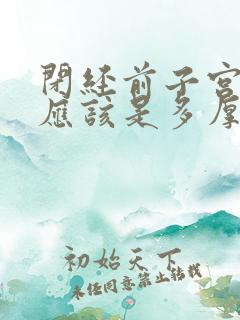 閉經前子宮
應該是多厚
初始天下
未經同意禁止轉載